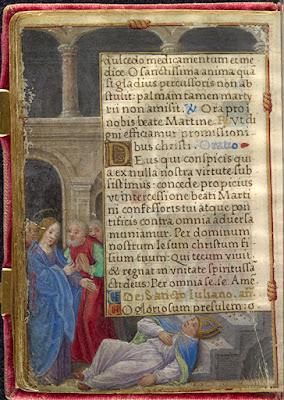 dulcedo medicamentum et me
dice. O sanctissima anima quā
si gladius percussoris non ab
stulit: palmam tamen marty
rii non amisit. ℣. Ora pro
nobis beate Martine. ℟. Vt di
gni efficiamur promissioni
bus christi. Oratio
Deus qui conspicis quia
ex nulla nostra virtute sub
sistimus: concede propicius
vt intercessione beati Marti
ni confessoris tui atque ponti
ficis contra omnia aduersa
muniamur. Per dominum
nostrum Iesum christum fi
lium tuum. Qui tecum viuit
& regnat in vnitate spiritussā
cti deus: Per omnia se. se. Amē
De Sancto Iuliano. an
O gloriosum presulem: o